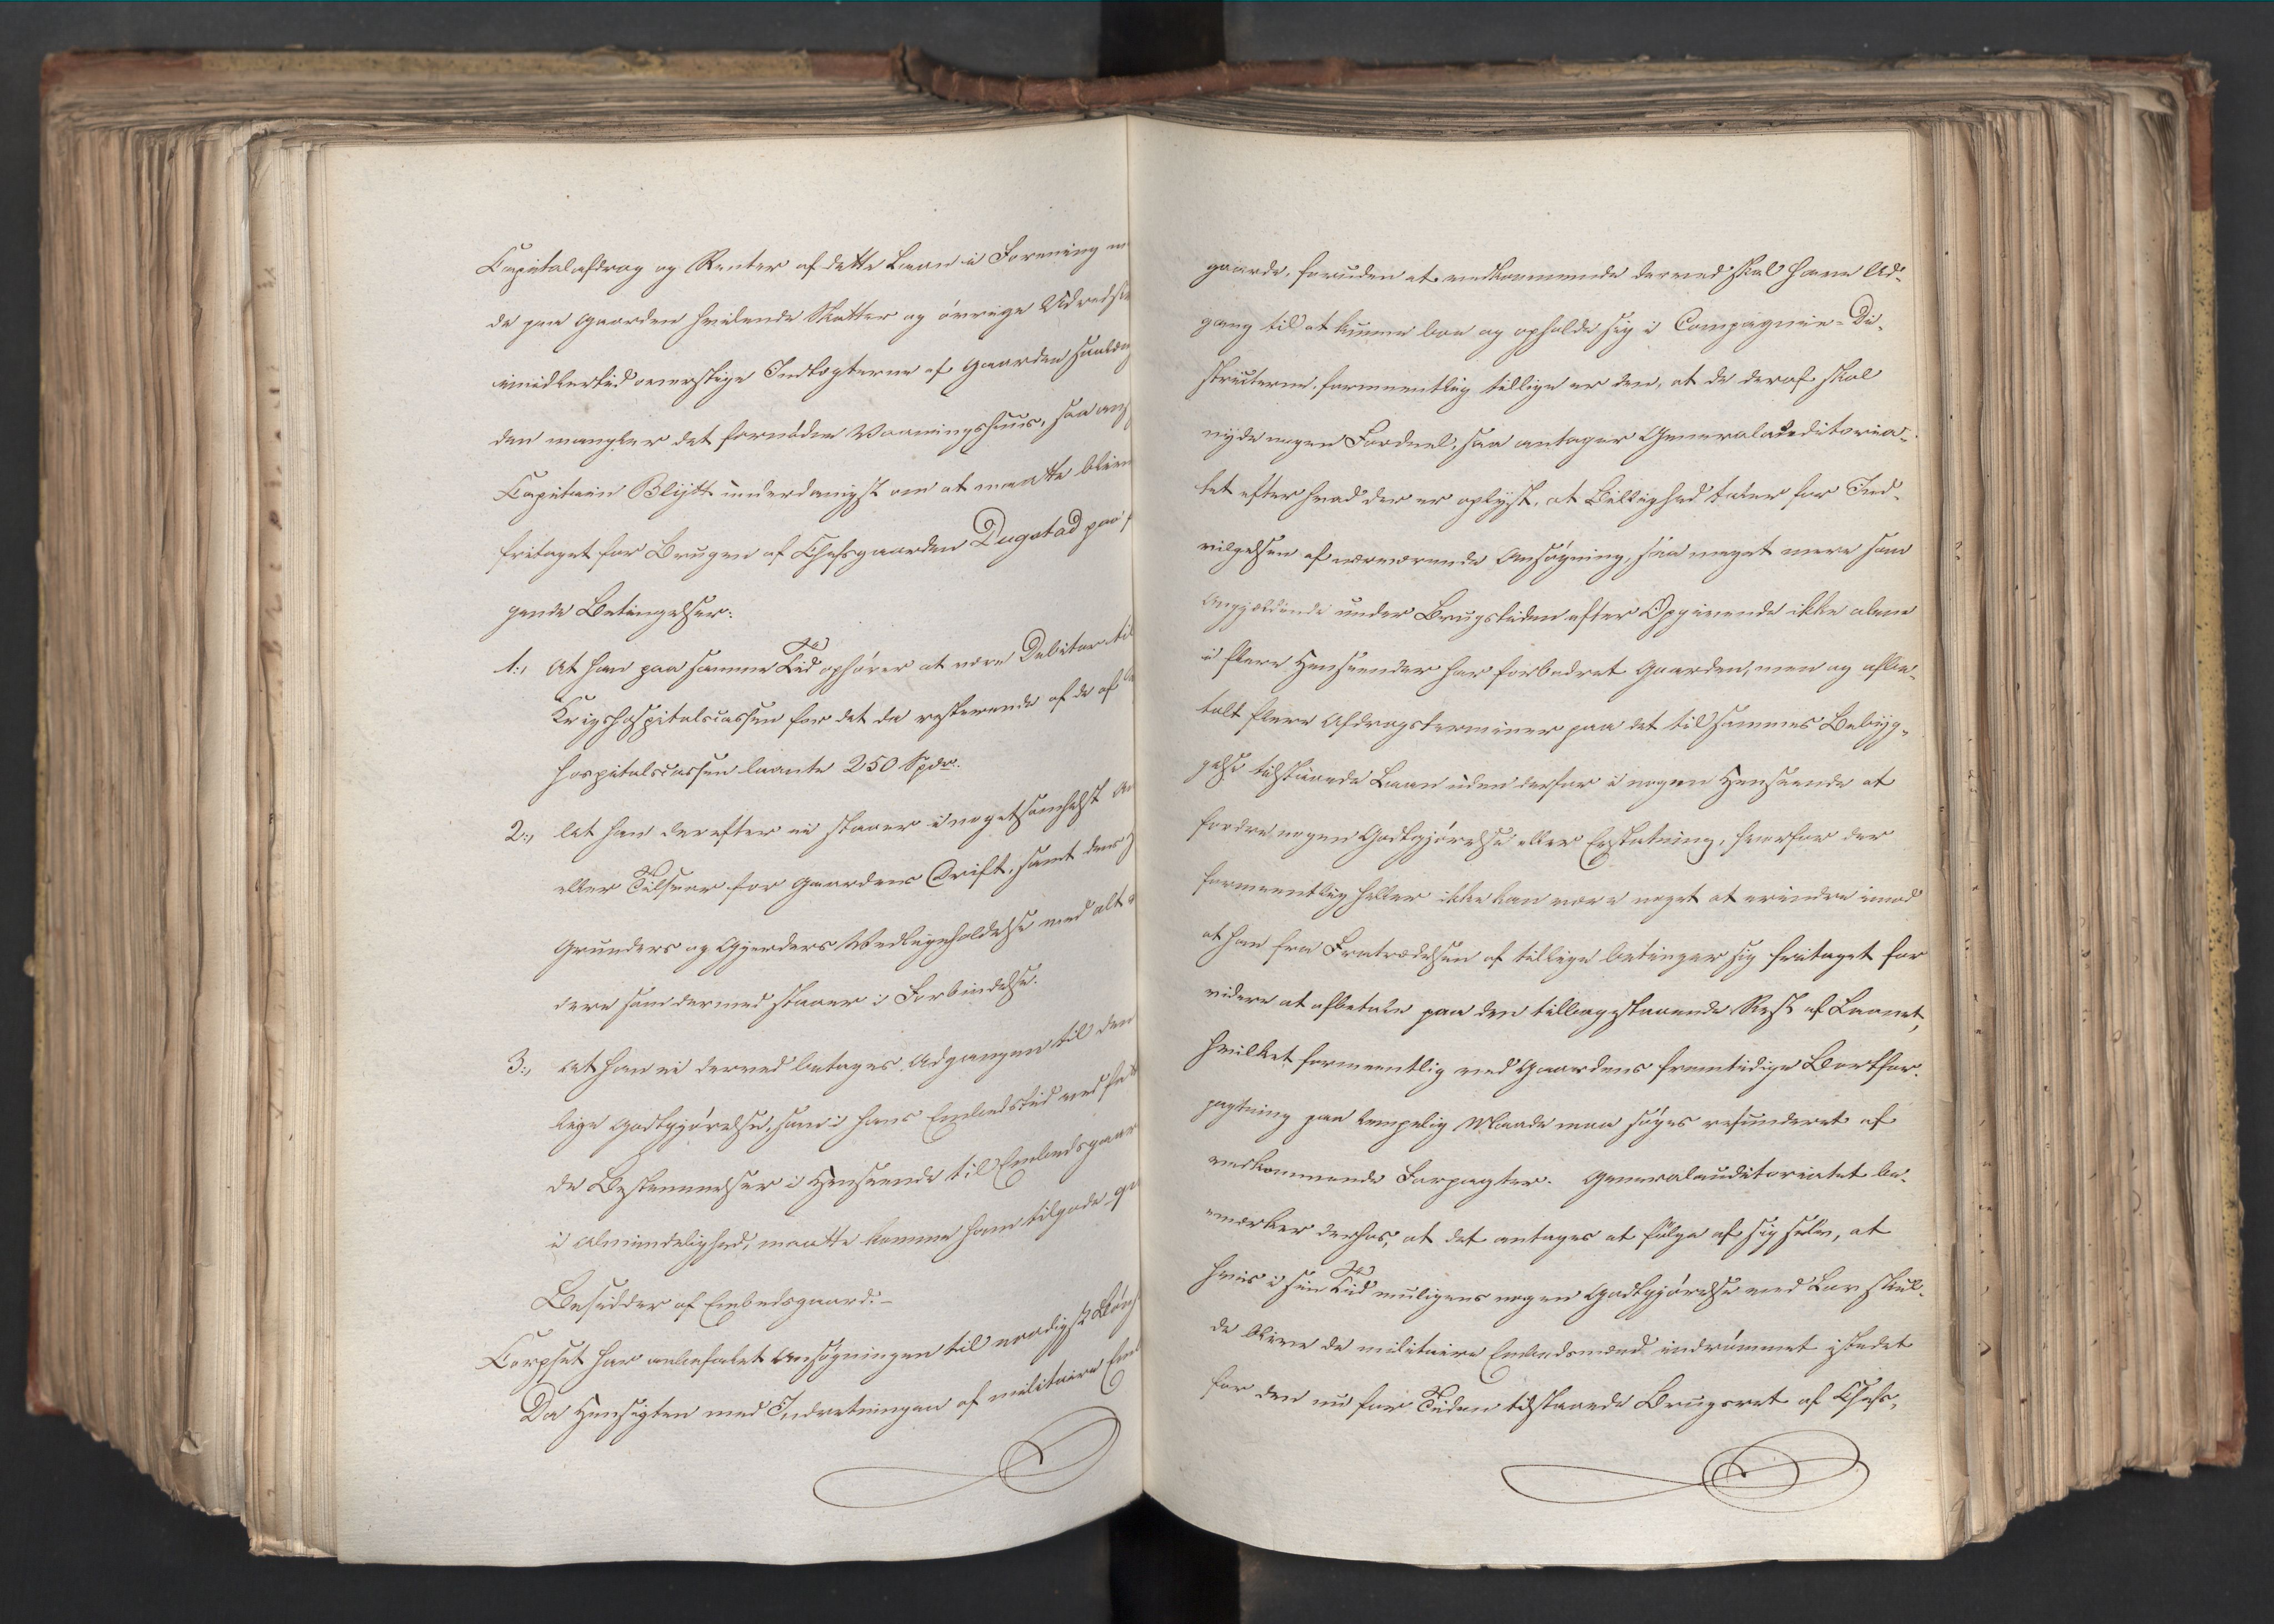 Capitalafdrag og Renter af dette Laan i Forening m
de paa Gaarden hvilende Skatter og øvrige Udreds
imidlertid overstige Indtægterne af Gaarden
den mangler det fornødne Vaaningshuus, saa
Capitain Blijtt underdanigst om at maatte blive
fritaget for Brugen af Chefsgaarden Dugstad paa f
gende Betingelser:
1., At han paa samme Tid ophører at være Debitor til
Krigshospitalscassen for det da resterende af de af
Hospitalscassen laante 250 Spdr.
2., At han derefter ei staaer i nogetsomhelst An
eller Tilsvar for Gaardens Drift, samt dens
Grunders og Gjerders Vedligeholdelse med alt
dere som dermed staaer i Forbindelse.
3., At han ei derved betages Adgangen til den
lige Godtgjørelse, som i hans Embedstid ved
de Bestemmelser i Henseende til Embedsgaar
i Almindelighed, maatte komme ham tilgode
Besidder af Embedsgaard.-
Corpset har anbefalet Ansøgningen til naadigst Bøn
Da Hensigten med Indretningen af militaire Em
gaarde, foruden at vedkommende derved skal have Ad-
gang til at kunne boe og opholde sig i Compagnie-Di-
stricterne, formeentlig tillige er den, at de deraf skal
nyde nogen Fordeel, saa antager Generalauditoria-
tet efter hvad der er oplyst, at Billighed taler for Ind-
vilgelsen af nærværende Ansøgning, saa meget mere som
Angjældende under Brugstiden efter Opgivende ikke alene
i flere Henseender har forbedret Gaarden, men og afbe-
talt flere Afdragsterminer paa det til sammes Bebyg-
gelse tilstaaede Laan uden derfor i nogen Henseende at
fordre nogen Godtgjørelse eller Erstatning, hvorfor der
formeentlig heller ikke kan være noget at erindre imod
at han fra Fratrædelsen af tillige betinger sig fritaget for
videre at afbetale paa den tilbagestaaende Rest af Laanet,
hvilket formeentlig ved Gaardens fremtidige Bortfor-
pagtning paa lempelig Maade maa søges refunderet af
vedkommende Forpagter. Generalauditoriatet be-
mærker derhos, at det antages at følge af sig selv, at
hvis i sin Tid muligens nogen Godtgjørelse ved Lov skul-
de blive de militaire Embedsmænd indrømmet istedet
for den nu for Tiden tilstaaede Brugsret af Chefs-